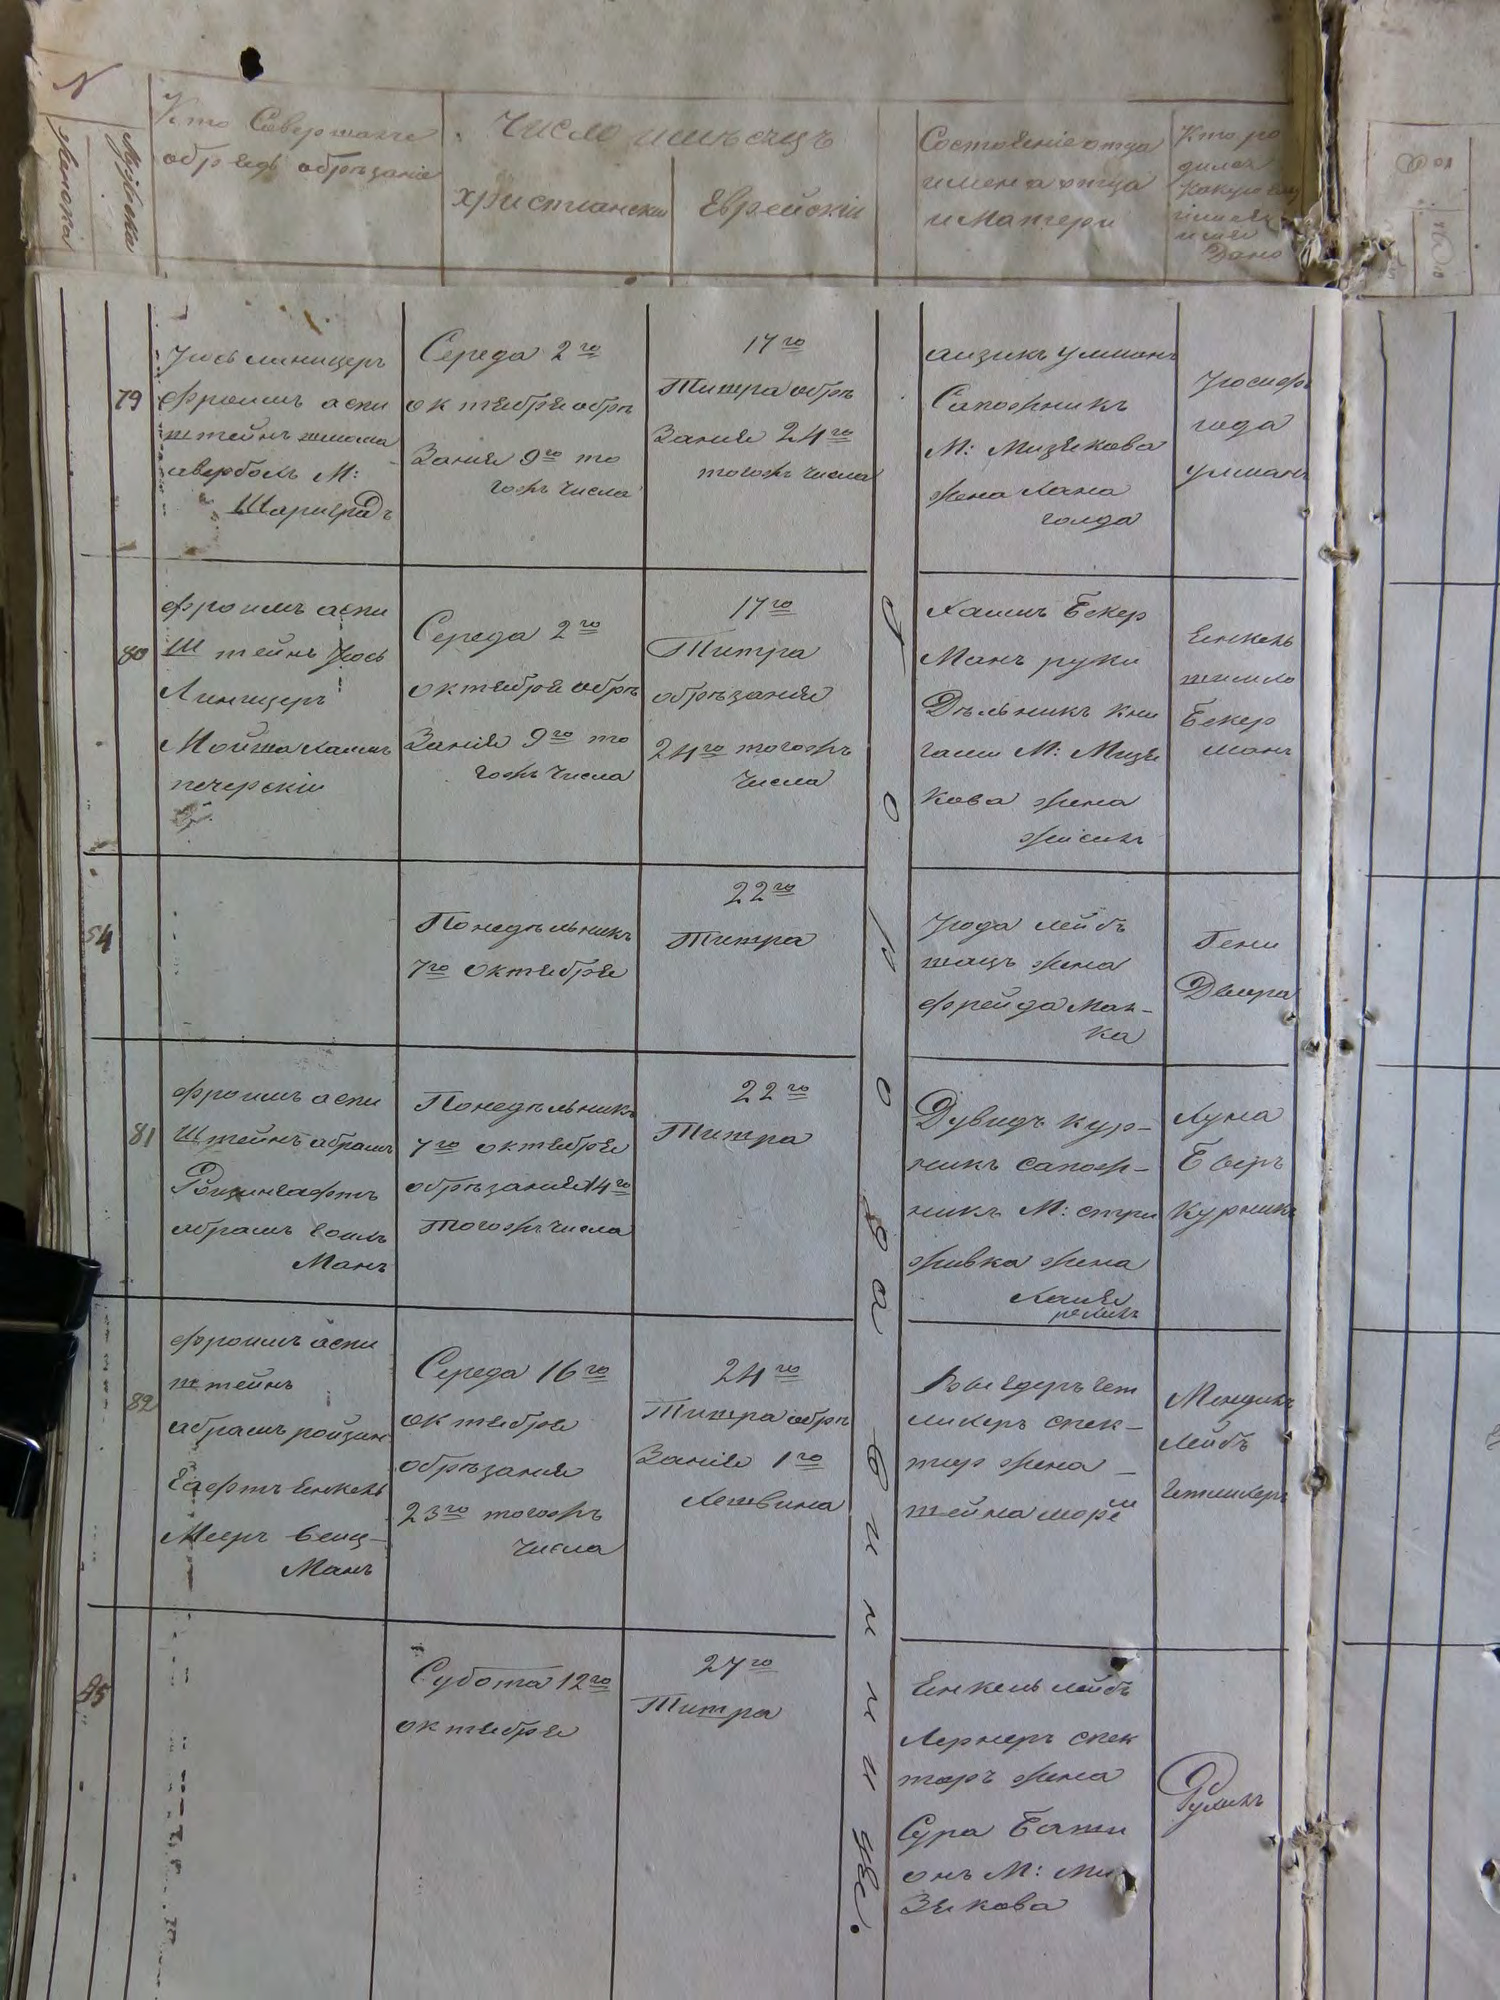 N
женска
Мужеска
Кто Совершалъ
обрядъ обрѣзанія
Число и мѣсецъ
христиански
Еврейскій
Состояніе отца
имена отца
и Матери
Кто ро
дился
имя
Дано
79
Іось линицеръ
фроимъ аспи
штейнъ
авербохъ М:
Шариградъ
Середа 2го
октября обрѣ
Занія 9го то
гожъ Числа
17го
Тишра обрѣ
Занія 24го
тогожъ Числа
аизикъ улманъ
Сапожникъ
М: Мизякова
жена хана
голда
Іосифъ
года
улманъ
80
фроимъ аспи
Штейнъ Іось
Линицеръ
Мойша хаимъ
печерскій
Середа 2го
октября обрѣ
Занія 9го то
гожъ Числа
17го
Тишра
обрѣзанія
24го тогожъ
Числа
Хаимъ Бекер
Манъ руки
Дѣльникъ кни
гами М: Мизя
кова жена
Енкель
шмило
Бекер
манъ
54
Понедѣльникъ
7го октября
22го
Тишра
Іода лейбъ
жена
фрейда Мал-
ка
Гени
Двера
81
фроимъ аспи
Штейнъ абрамъ
Ройзингафтъ
абрамъ
Манъ
Понедѣльникъ
7го октября
обрѣзанія 14го
Тогожъ Числа
22го
Тишра
Дувидъ кур-
никъ сапож-
никъ М: стри
жавка жена
Хуна
Беръ
Курникъ
82
фроимъ аспи
штейнъ
абрамъ ройзин
гафтъ Енкель
Мееръ Вейц-
Манъ
Середа 16го
октября
обрѣзанія
23го тогожъ
Числа
24го
Тишра обрѣ
Занія 1го
Хешвина
гет
ликеръ спек-
торъ жена -
шейна
Мендель
лейбъ
55
Субота 12го
октября
27го
Тишра
Енкель лейбъ
Лернеръ спек
торъ жена
Сура Башы
онъ М: Ми
Зякова